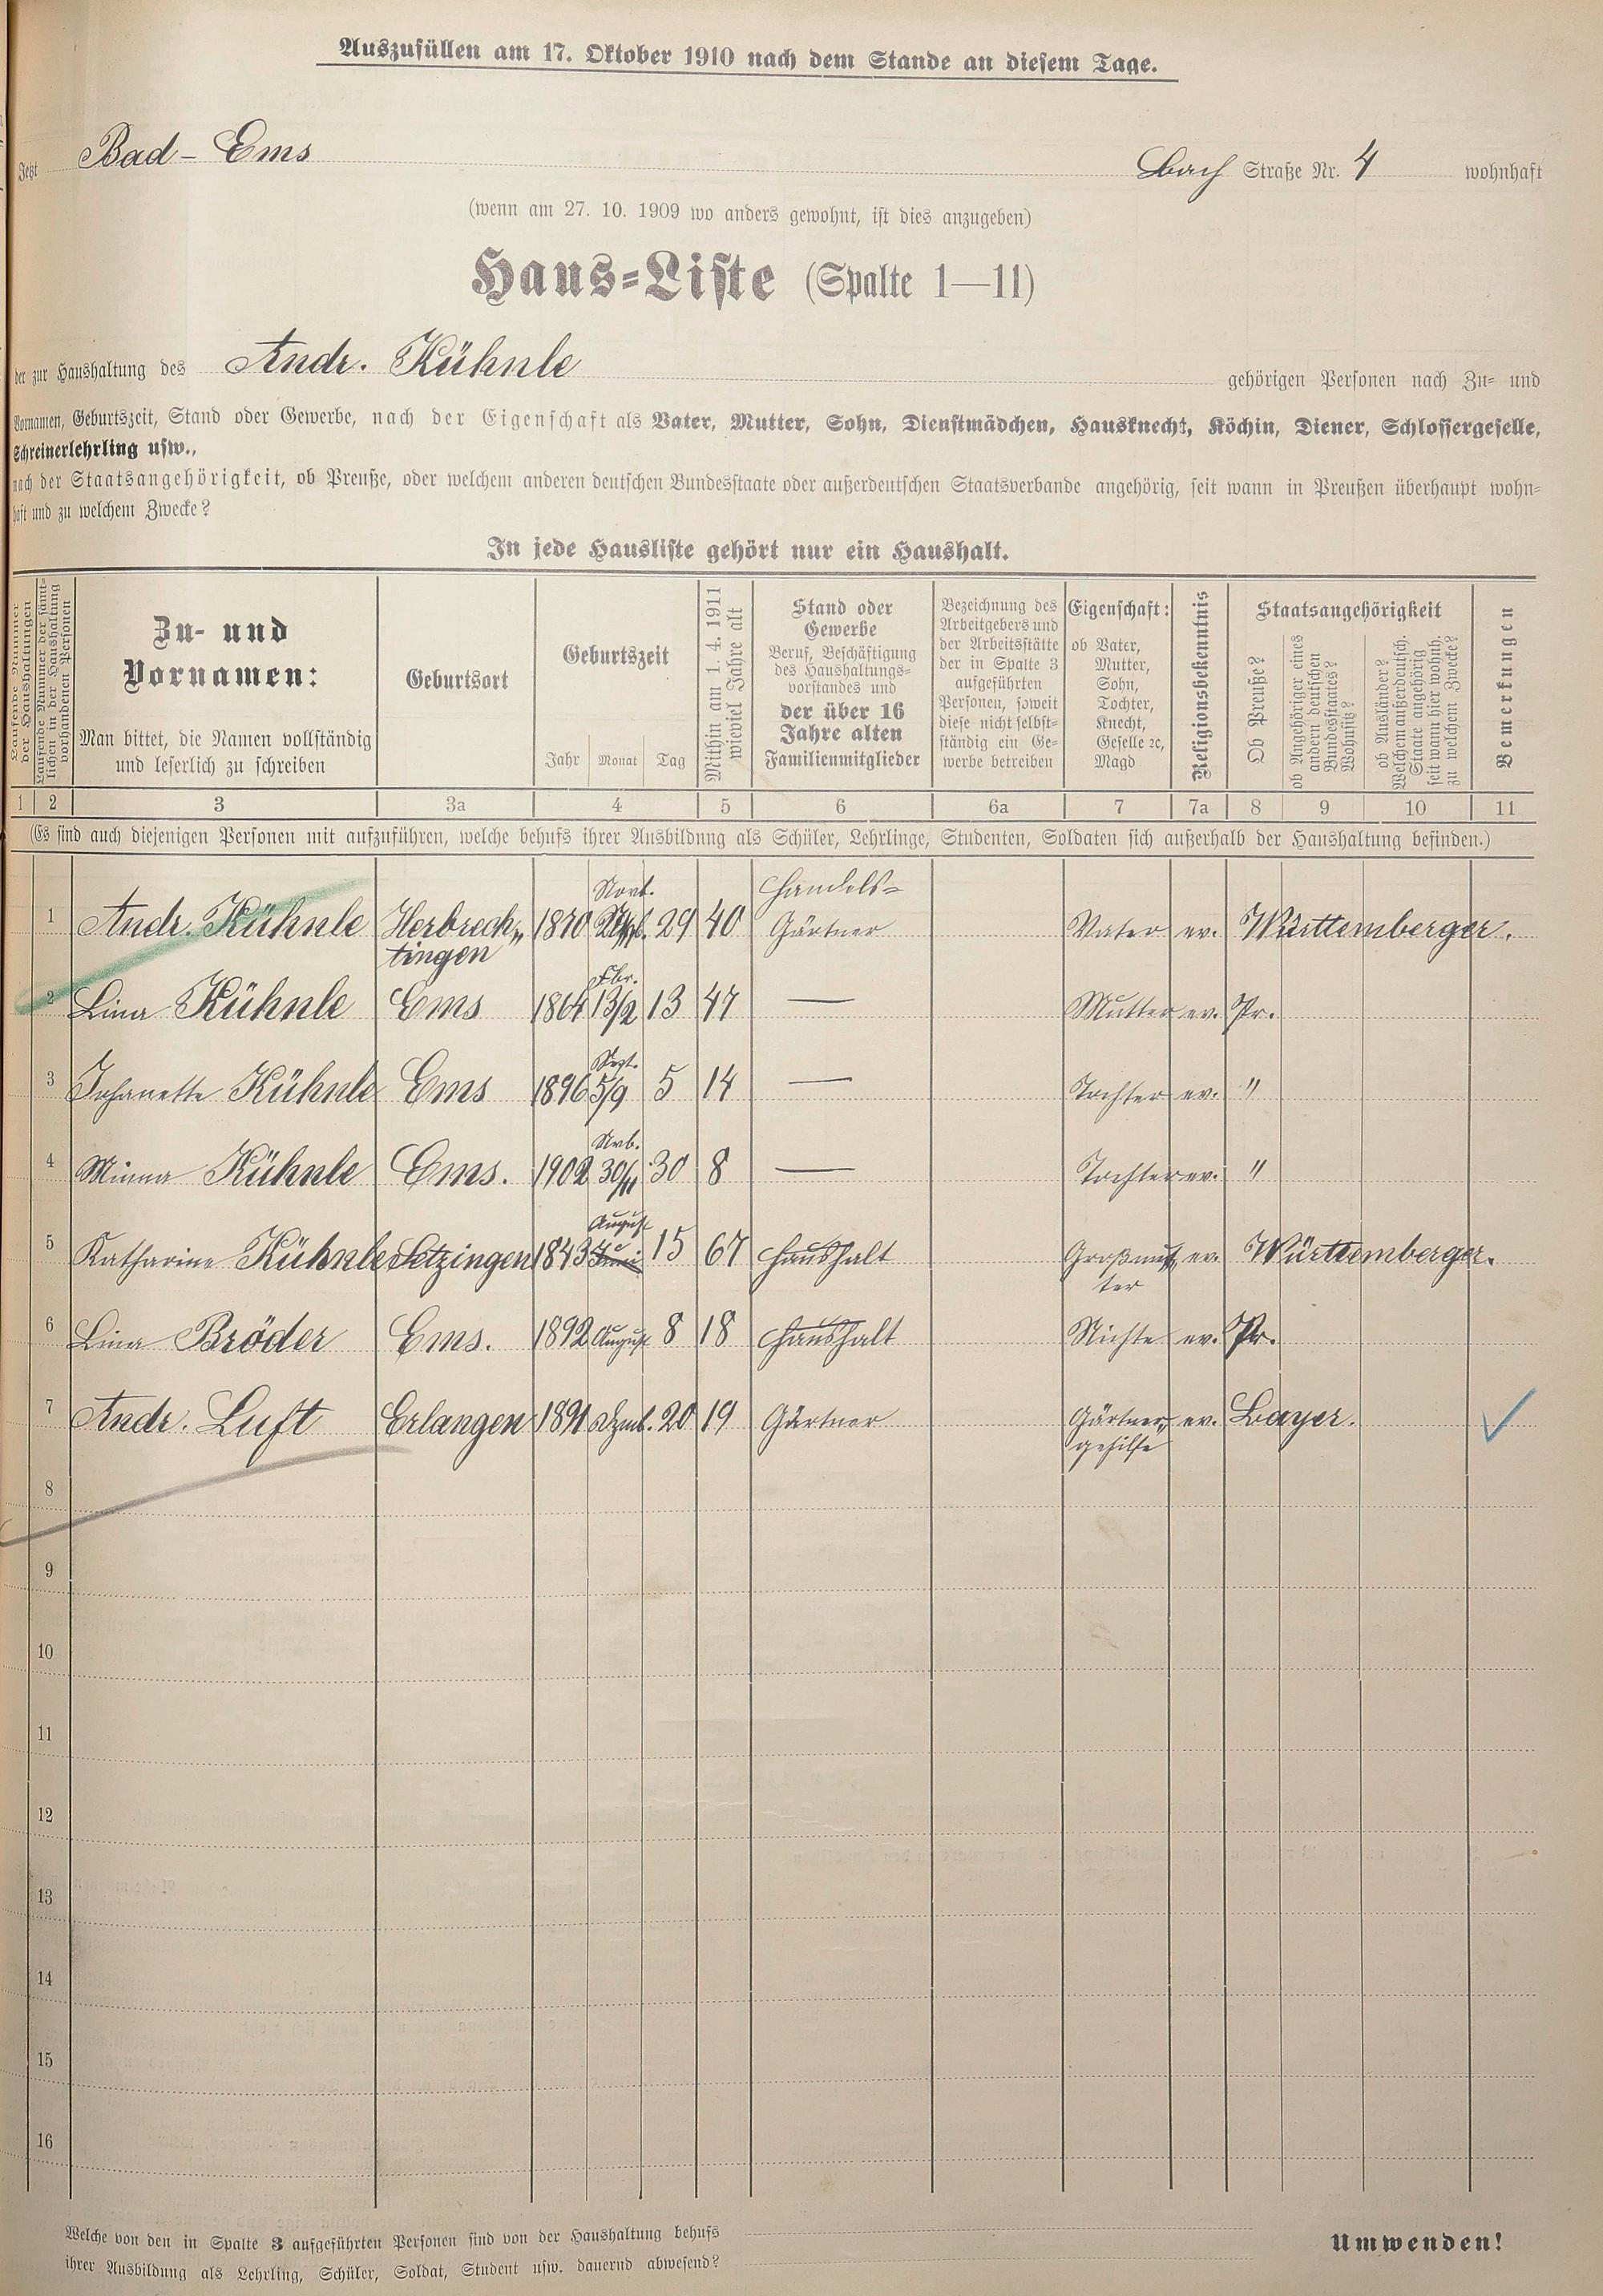 Auszufüllen am 17. Oktober 1910 nach dem Stande an diesem Tage.
Jetzt Bad-Ems Bach Straße Nr. 4 wohnhaft
(wenn am 27. 10. 1909 wo anders gewohnt, ist dies anzugeben)
Haus-Liste (Spalte 1—11)
der zur Haushaltung des Andr. Kühnle gehörigen Personen nach Zu- und
Vornamen, Geburtszeit, Stand oder Gewerbe, nach der Eigenschaft als Vater, Mutter, Sohn, Dienstmädchen, Hausknecht, Köchin, Diener, Schlossergeselle,
Schreinerlehrling usw.,
nach der Staatsangehörigkeit, ob Preuße, oder welchem anderen deutschen Bundesstaate oder außerdeutschen Staatsverbande angehörig, seit wann in Preußen überhaupt wohn-
haft und zu welchem Zwecke?
In jede Hausliste gehört nur ein Haushalt.
Laufende Nummer
der Haushaltungen
Laufende Nummer der sämt-
lichen in der Haushaltung
vorhandenen Personen
Zu- und
Vornamen:
Man bittet, die Namen vollständig
und leserlich zu schreiben
Geburtsort
Geburtszeit
Jahr Monat Tag
Mithin am 1. 4. 1911
wieviel Jahre alt
Stand oder
Gewerbe
Beruf, Beschäftigung
des Haushaltungs-
vorstandes und
der über 16
Jahre alten
Familienmitglieder
Bezeichnung des
Arbeitgebers und
der Arbeitsstätte
der in Spalte 3
aufgeführten
Personen, soweit
diese nicht selbst-
ständig ein Ge-
werbe betreiben
Eigenschaft:
ob Vater,
Mutter,
Sohn,
Tochter,
Knecht,
Geselle ꝛc,
Magd
Religionsbekenntnis
Staatsangehörigkeit
Ob Preuße?
ob Angehöriger eines
andern deutschen
Bundesstaates?
Wohnsitz?
ob Ausländer?
Welchem außerdeutsch.
Staate angehörig
seit wann hier wohnh.
zu welchem Zwecke?
Bemerkungen
1 2 3 3a 4 5 6 6a 7 7a 8 9 10 11
(Es sind auch diejenigen Personen mit aufzuführen, welche behufs ihrer Ausbildung als Schüler, Lehrlinge, Studenten, Soldaten sich außerhalb der Haushaltung befinden.)
Novb. Handels-
1 Andr. Kühnle Herbrech„ 1870 Sept. 29 40 Gärtner Vater ev. Württemberger.
tingen
Fbr.
2 Lina Kühnle Ems 1864 13/2 13 47 — Mutter ev. Pr.
Sept.
3 Johanette Kühnle Ems 1896 5/9 5 14 — Tochter ev. "
Nvb.
4 Minna Kühnle Ems. 1902 30/11 30 8 — Tochter ev. "
August
5 Katharine Kühnle Setzingen 1843 Juni 15 67 Haushalt Großmut„ ev. Württemberger.
ter
6 Lina Bröder Ems. 1892 August 8 18 Haushalt Nichte ev. Pr.
7 Andr. Luft Erlangen 1891 Dzmb. 20 19 Gärtner Gärtner„ ev. Bayer. ✓
gehilfe
8
9
10
11
12
13
14
15
16
Welche von den in Spalte 3 aufgeführten Personen sind von der Haushaltung behufs
ihrer Ausbildung als Lehrling, Schüler, Soldat, Student usw. dauernd abwesend?
Umwenden!